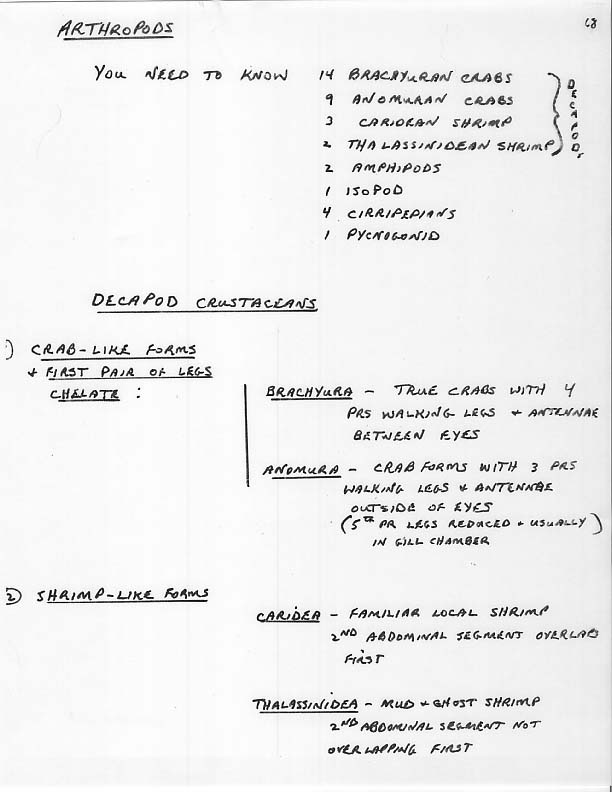 68
ARTHROPODS
YOU NEED TO KNOW 14 BRACHYURAN CRABS
9 ANOMURAN CRABS
3 CARIDEAN SHRIMP
2 THALASSINIDEAN SHRIMP
DECAPODS
2 AMPHIPODS
1 ISOPOD
4 CIRRIPEPIANS
1 PYCNOGONID
DECAPOD CRUSTACEANS
1) CRAB-LIKE FORMS
+ FIRST PAIR OF LEGS
CHELATE :
BRACHYURA - TRUE CRABS WITH 4
PRS WALKING LEGS + ANTENNAE
BETWEEN EYES
ANOMURA - CRAB FORMS WITH 3 PRS
WALKING LEGS + ANTENNAE
OUTSIDE OF EYES
(5TH PR LEGS REDUCED + USUALLY)
IN GILL CHAMBER
2) SHRIMP-LIKE FORMS
CARIDEA - FAMILIAR LOCAL SHRIMP
2ND ABDOMINAL SEGMENT OVERLAPS
FIRST
THALASSINIDEA - MUD + GHOST SHRIMP
2ND ABDOMINAL SEGMENT NOT
OVERLAPPING FIRST